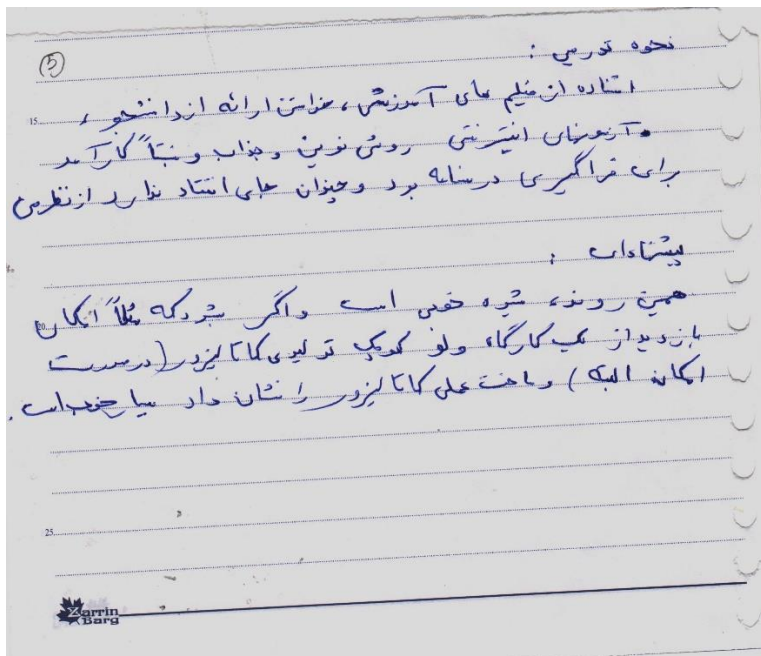 ۵
نحوه تدریس :
استفاده از فیلم های آموزشی ، خواستن ارائه از دانشجو ،
15
و آزمونهای اینترنتی روشی نوین و جذاب و نسبتاً کارآمد
برای فراگیری در سامانه بود و چندان جای انتقاد ندارد از نظر من
پیشنهادات :
همین روند، شیوه خوبی است و اگر شود که مثلاً امکان
20
بازدید از یک کارگاه ولو کوچک تولیدی کاتالیزور (در صورت
امکان البته) و ساخت عملی کاتالیزور را نشان داد بسیار خوب است .
25
Zarrin
Barg